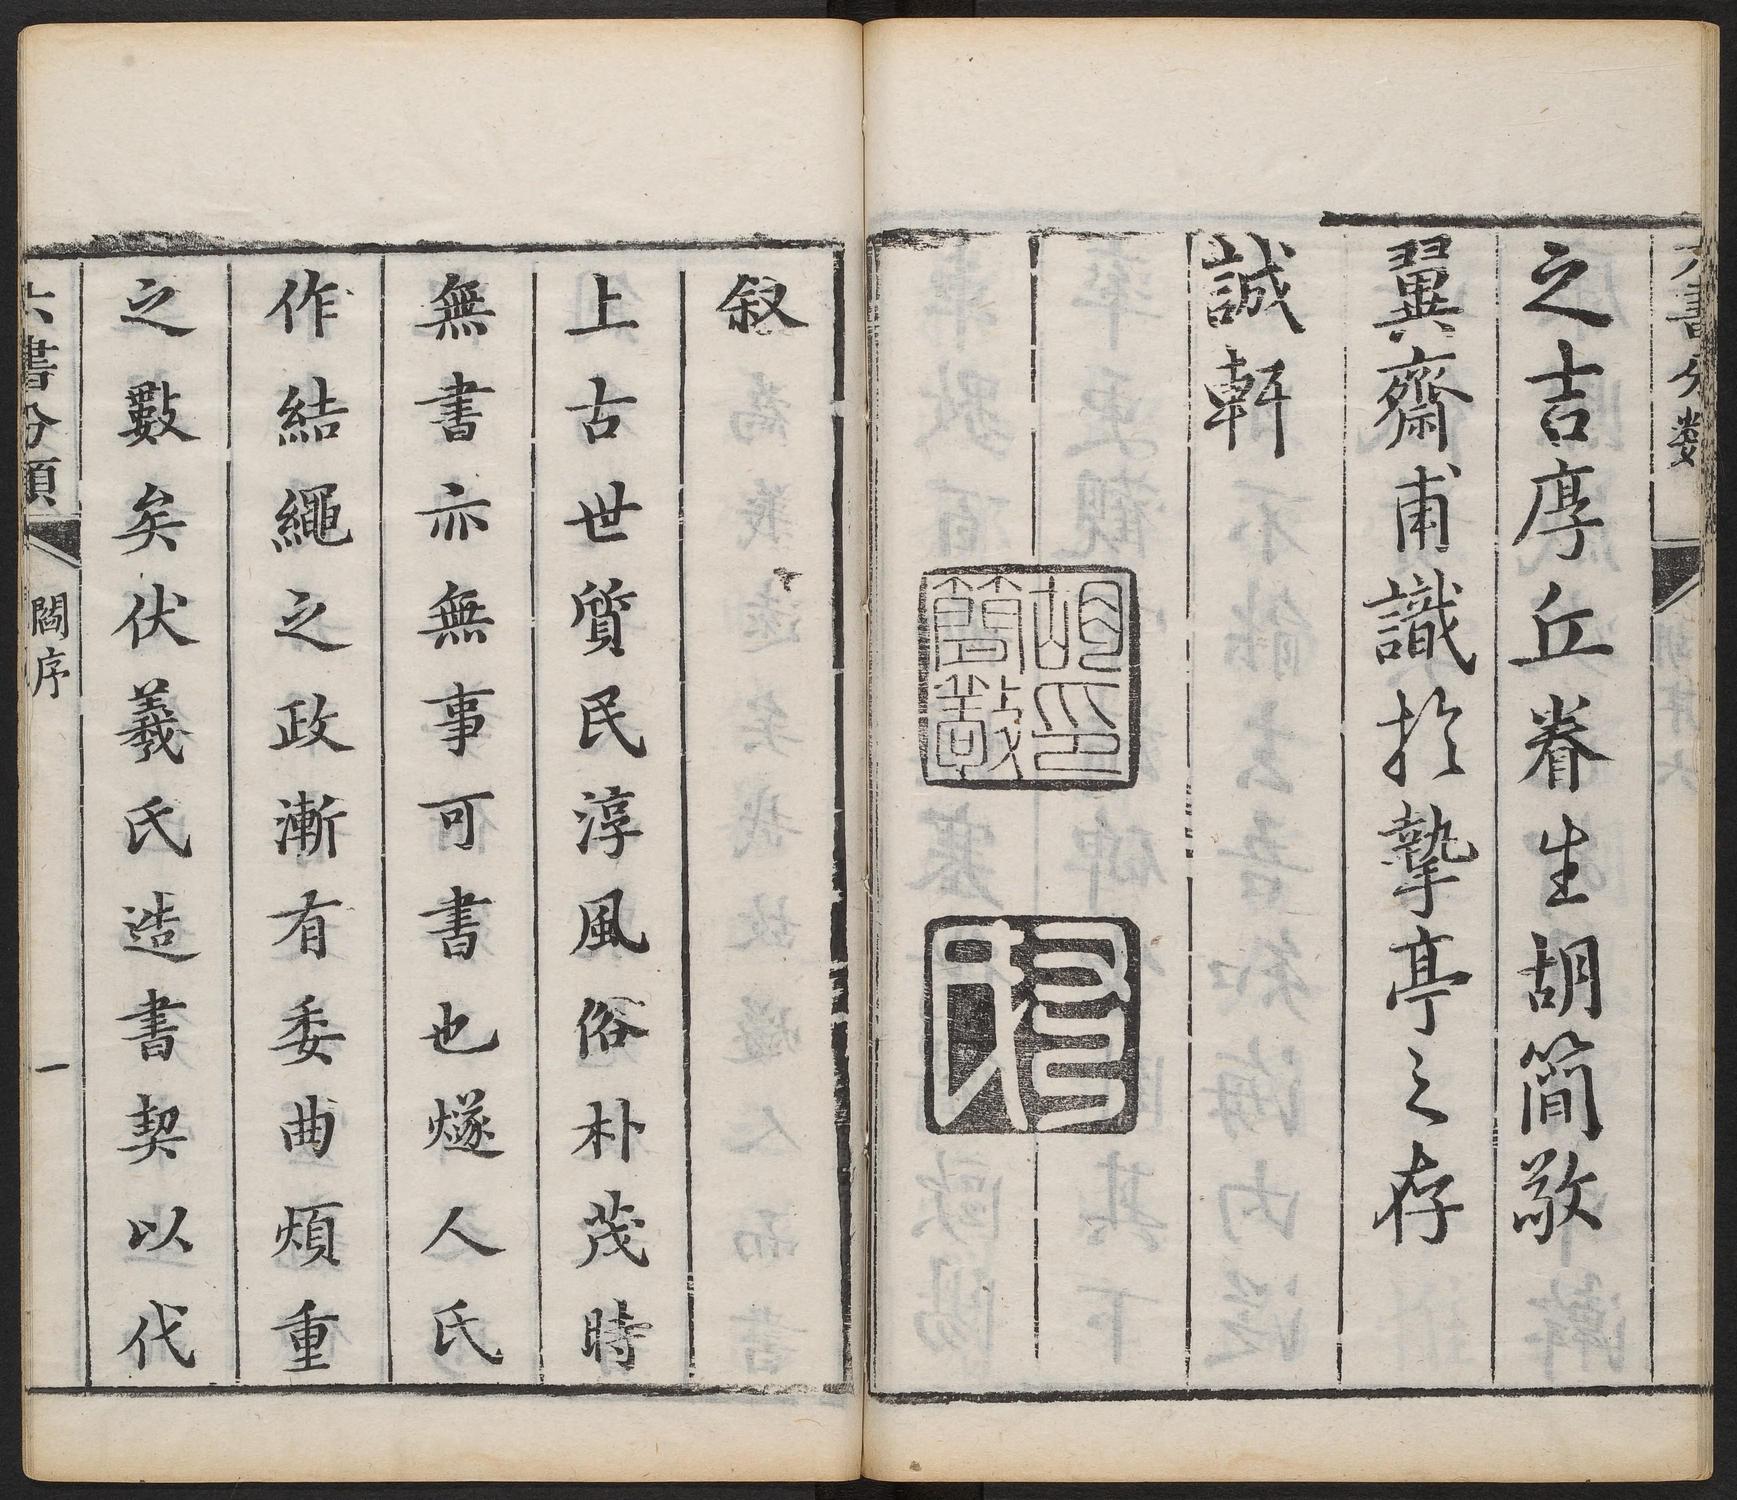 六書分類
之吉厚丘眷生胡簡敬
翼齋甫識於摯亭之存
誠軒
胡印簡敬
叙
上古世質民淳風俗朴茂時
無書亦無事可書也燧人氏
作結繩之政漸有委曲煩重
之數矣伏羲氏造書契以代
六書分類
閻序
一